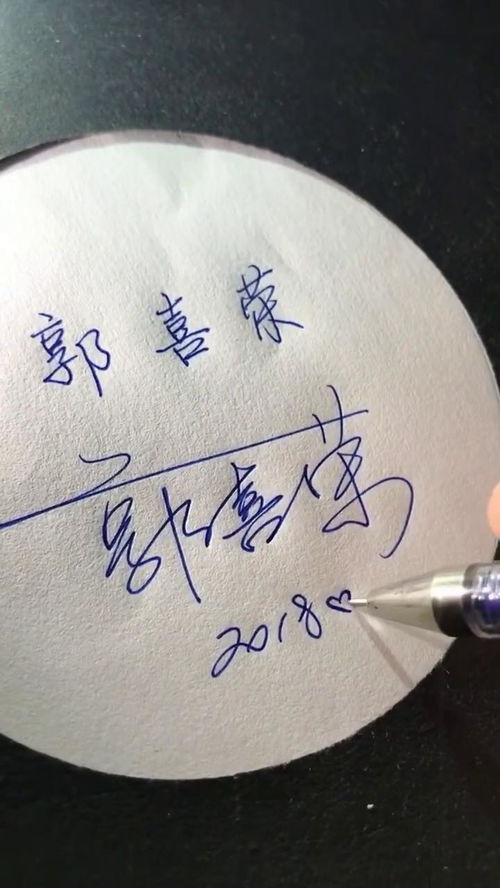 郭喜荣
郭喜荣
2018♡